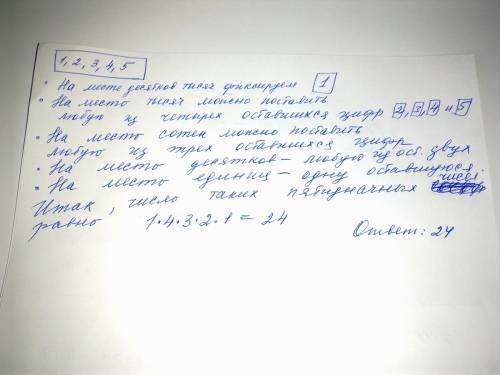 1, 2, 3, 4, 5
• На месте десятков тысяч фиксируем 1
• На место тысяч можно поставить
любую из четырех оставшихся цифр 2, 3, 4 и 5
• На место сотен можно поставить
любую из трех оставшихся цифр
• На место десятков – любую из ост. двух
• На место единиц – одну оставшуюся
Итак, число таких пятизначных чисел
равно 1·4·3·2·1 = 24
Ответ: 24